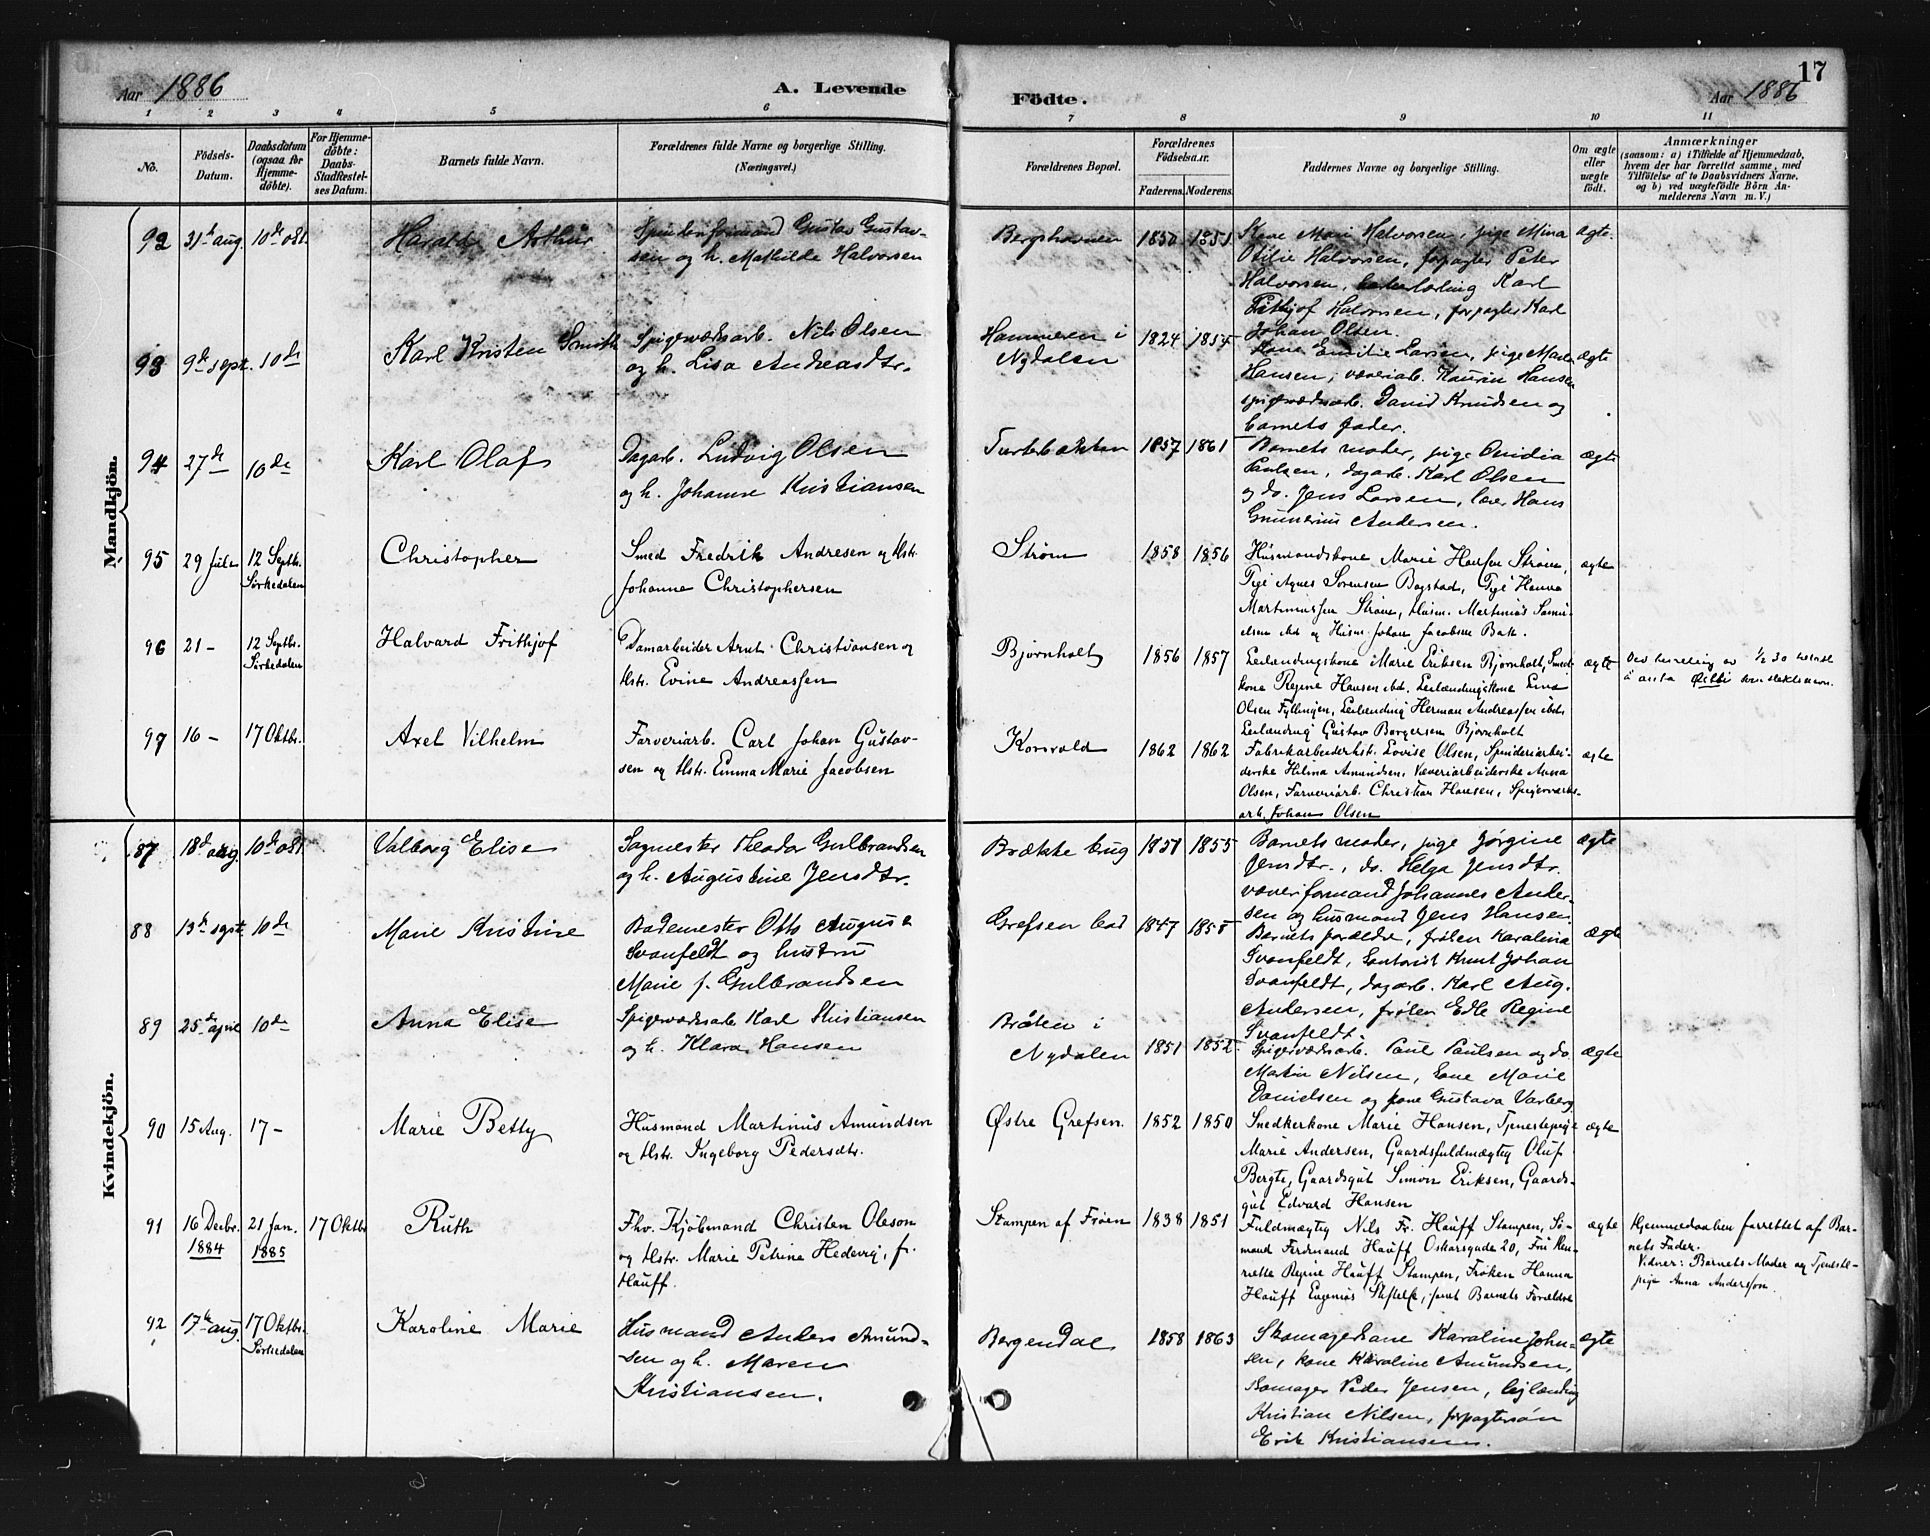 Aar 1886
A. Levende
Födte.
Aar 1886
17
1 2 3 4 5 6 7 8 9 10 11
No.
Födsels-
Datum.
Daabsdatum
(ogsaa for
Hjemme-
döbte).
For Hjemme-
döbte:
Daabs-
Stadfæstel-
ses Datum.
Barnets fulde Navn.
Forældrenes fulde Navne og borgerlige Stilling.
(Næringsvei.)
Forældrenes Bopæl.
Forældrenes
Födselsaar.
Faderens. Moderens.
Faddernes Navne og borgerlige Stilling.
Om ægte
eller
uægte
födt.
Anmærkninger
(saasom: a) i Tilfælde af Hjemmedaab,
hvem der har forrettet samme, med
Tilföielse af to Daabsvidners Navne,
og b) ved uægtefödte Börn An-
melderens Navn m. V.)
Mandkjön.
92 31te aug. 10de okt. Harald Arthur
Spinderiformand Gustav Gustav-
sen og h. Mathilde Halvorsen
Bergshavnen 1850 1851
Kone Mari Halvorsen, pige Mina
Otilie Halvorsen, forpagter Peter
Halvorsen, Karl
Frithjof Halvorsen, forpagter Karl
Johan Olsen.
ægte.
93 9de sept. 10de Karl Kristen Smith
Spigerværksarb. Nils Olsen
og h. Lisa Andreasdtr.
Hammeren i
Nydalen
1824 1854
Kone Emilie Larsen, pige Maren
Hansen, væveriarb. Kaurin Hansen
spigerværksarb. David Knudsen og
barnets fader.
ægte
94 27de 10de Karl Olaf
Dagarb. Ludvig Olsen
og h. Johanne Kristiansen
Turterbakken 1857 1861
Barnets moder, pige Ovidia
Paulsen, dagarb. Karl Olsen
og do. Jens Larsen, lærer Hans
Gunnerius Andersen.
ægte
95 29 Juli 12 Septb.
Sørkedalen
Christopher
Smed Fredrik Andresen og Hst.
Johanne Christophersen
Strøm 1858 1856
Husmandskone Marie Hansen Strøm,
Pige Agnes Sørensen Bogstad, Pige Hanna
Martinussen Strøm, Husm. Martinius Samu-
elsen ibd og Husm. Johan Jacobsen Bak.
ægte
96 21 - 12 Septb.
Sørkedalen
Halvard Frithjof
Damarbeider Arnt Christiansen og
Hstr. Evine Andreassen
Bjørnholt 1856 1857
Leilændingskone Marie Eriksen Bjørnholt, Smed-
kone Regine Hansen ibd. Leilændingskone Lina
Olsen Fyllingen, Leilænding Herman Andreassen ibd.
Leilænding Gustav Borgersen Bjørnholt
ægte
Ved bevilling av ½ 30
å anta Øilbi som slektsnavn.
97 16 - 17 Oktbr. Axel Vilhelm
Farveriarb. Carl Johan Gustav-
sen og Hstr. Emma Marie Jacobsen
Korsvold 1862 1862
Fabrikarbeiderhst. Lovise Olsen, Spinderiarbei-
derske Helina Amundsen, Væveriarbeiderske Anna
Olsen, Farveriarb. Christian Hansen, Spigerværks-
arb. Johan Olsen
ægte
Kvindekjön.
87 18de aug 10de okt. Valborg Elise
Sagmester Theodor Gulbrandsen
og h. Augustine Jensdtr.
Brække brug 1857 1855
Barnets moder, pige Jørgine
Jensdtr., do. Helga Jensdtr.
væveriformand Johannes Ander-
sen og husmand Jens Hansen.
ægte
88 13de sept. 10de Marie Kristine
Bademester Otto August
Svanfeldt og hustru
Marie f. Gulbrandsen
Grefsen bad 1847 1855
Barnets forældre, frøken Karolina
Svanfeldt, Kontorist Knut Johan
Svanfeldt, dagarb. Karl Aug.
Andersen, frøken Edle Regine
Svanfeldt.
ægte
89 25de april 10de Anna Elise
Spigerværksarb Karl Kristiansen
og h. Klara Hansen
Bråten i
Nydalen 1851 1852
Spigerværksarb. Paul Paulsen og do.
Martin Nilsen, kone Marie
Danielsen og kone Gustava Varberg.
ægte
90 15 Aug. 17 - Marie Betty
Husmand Martinius Amundsen
og Hstr. Ingeborg Pedersdtr.
Østre Grefsen. 1852 1850
Snedkerkone Marie Hansen, Tjenestepige
Marie Andersen, Gaardsfuldmægtig Oluf
Bergte, Gaardsgut Simon Eriksen, Gaards-
gut Edvard Hansen
ægte
91 16 Decbr. 21 Jan. 17 Oktbr Ruth
1884 1885
Fhv. Kjøbmand Christen Oleson
og Hstr. Marie Petrine Hedevig, f.
Hauff.
Stampen af Frøen 1838 1851
Fuldmægtig Nils Fr. Hauff Stampen, Sø-
mand Ferdinand Hauff Oskarsgade 20, Fru Hen-
riette Regine Hauff Stampen, Frøken Hanna
Hauff Eugenias Stiftelse, samt Barnets Forældre
ægte
Hjemmedaaben forrettet af Bar-
nets Fader.
Vidner: Barnets Moder og Tjeneste-
pige Anna Anderson.
92 17de aug. 17 Oktbr.
Sørkedalen
Karoline Marie
Husmand Anders Amund-
sen og h. Maren
Kristiansen.
Bergendal 1858 1863
Skomagerkone Karoline John-
sen, kone Karoline Amundsen,
skomager Peder Jensen, lejlænding
Kristian Nilsen, forpagtersøn
Erik Kristiansen.
ægte